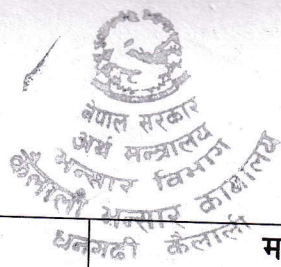 नेपाल सरकार
अर्थ मन्त्रालय
भन्सार विभाग
कैलाली भन्सार कार्यालय
धनगढी कैलाली
म